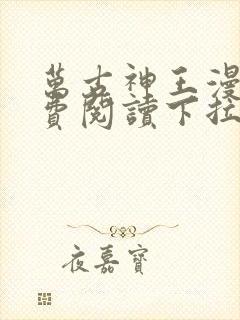 萬古神王漫
費閱讀下拉
夜嘉寶